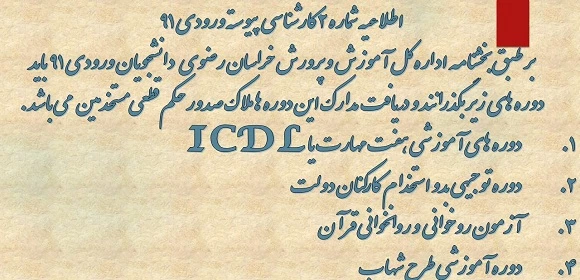 اطلاعیه شماره ۲ کارشناسی پیوسته ورودی ۹۱
بر طبق بخشنامه اداره کل آموزش و پرورش خراسان رضوی دانشجویان ورودی ۹۱ باید
دوره های زیر بگذرانند و دریافت مدارک این دوره ها ملاک صدور حکم قطعی مستخدمین می باشد.
۱. دوره های آموزشی هفت مهارت یا ICDL
۲. دوره توجیهی بدو استخدام کارکنان دولت
۳. آزمون روخوانی و روانخوانی قرآن
۴. دوره آموزشی طرح شهاب